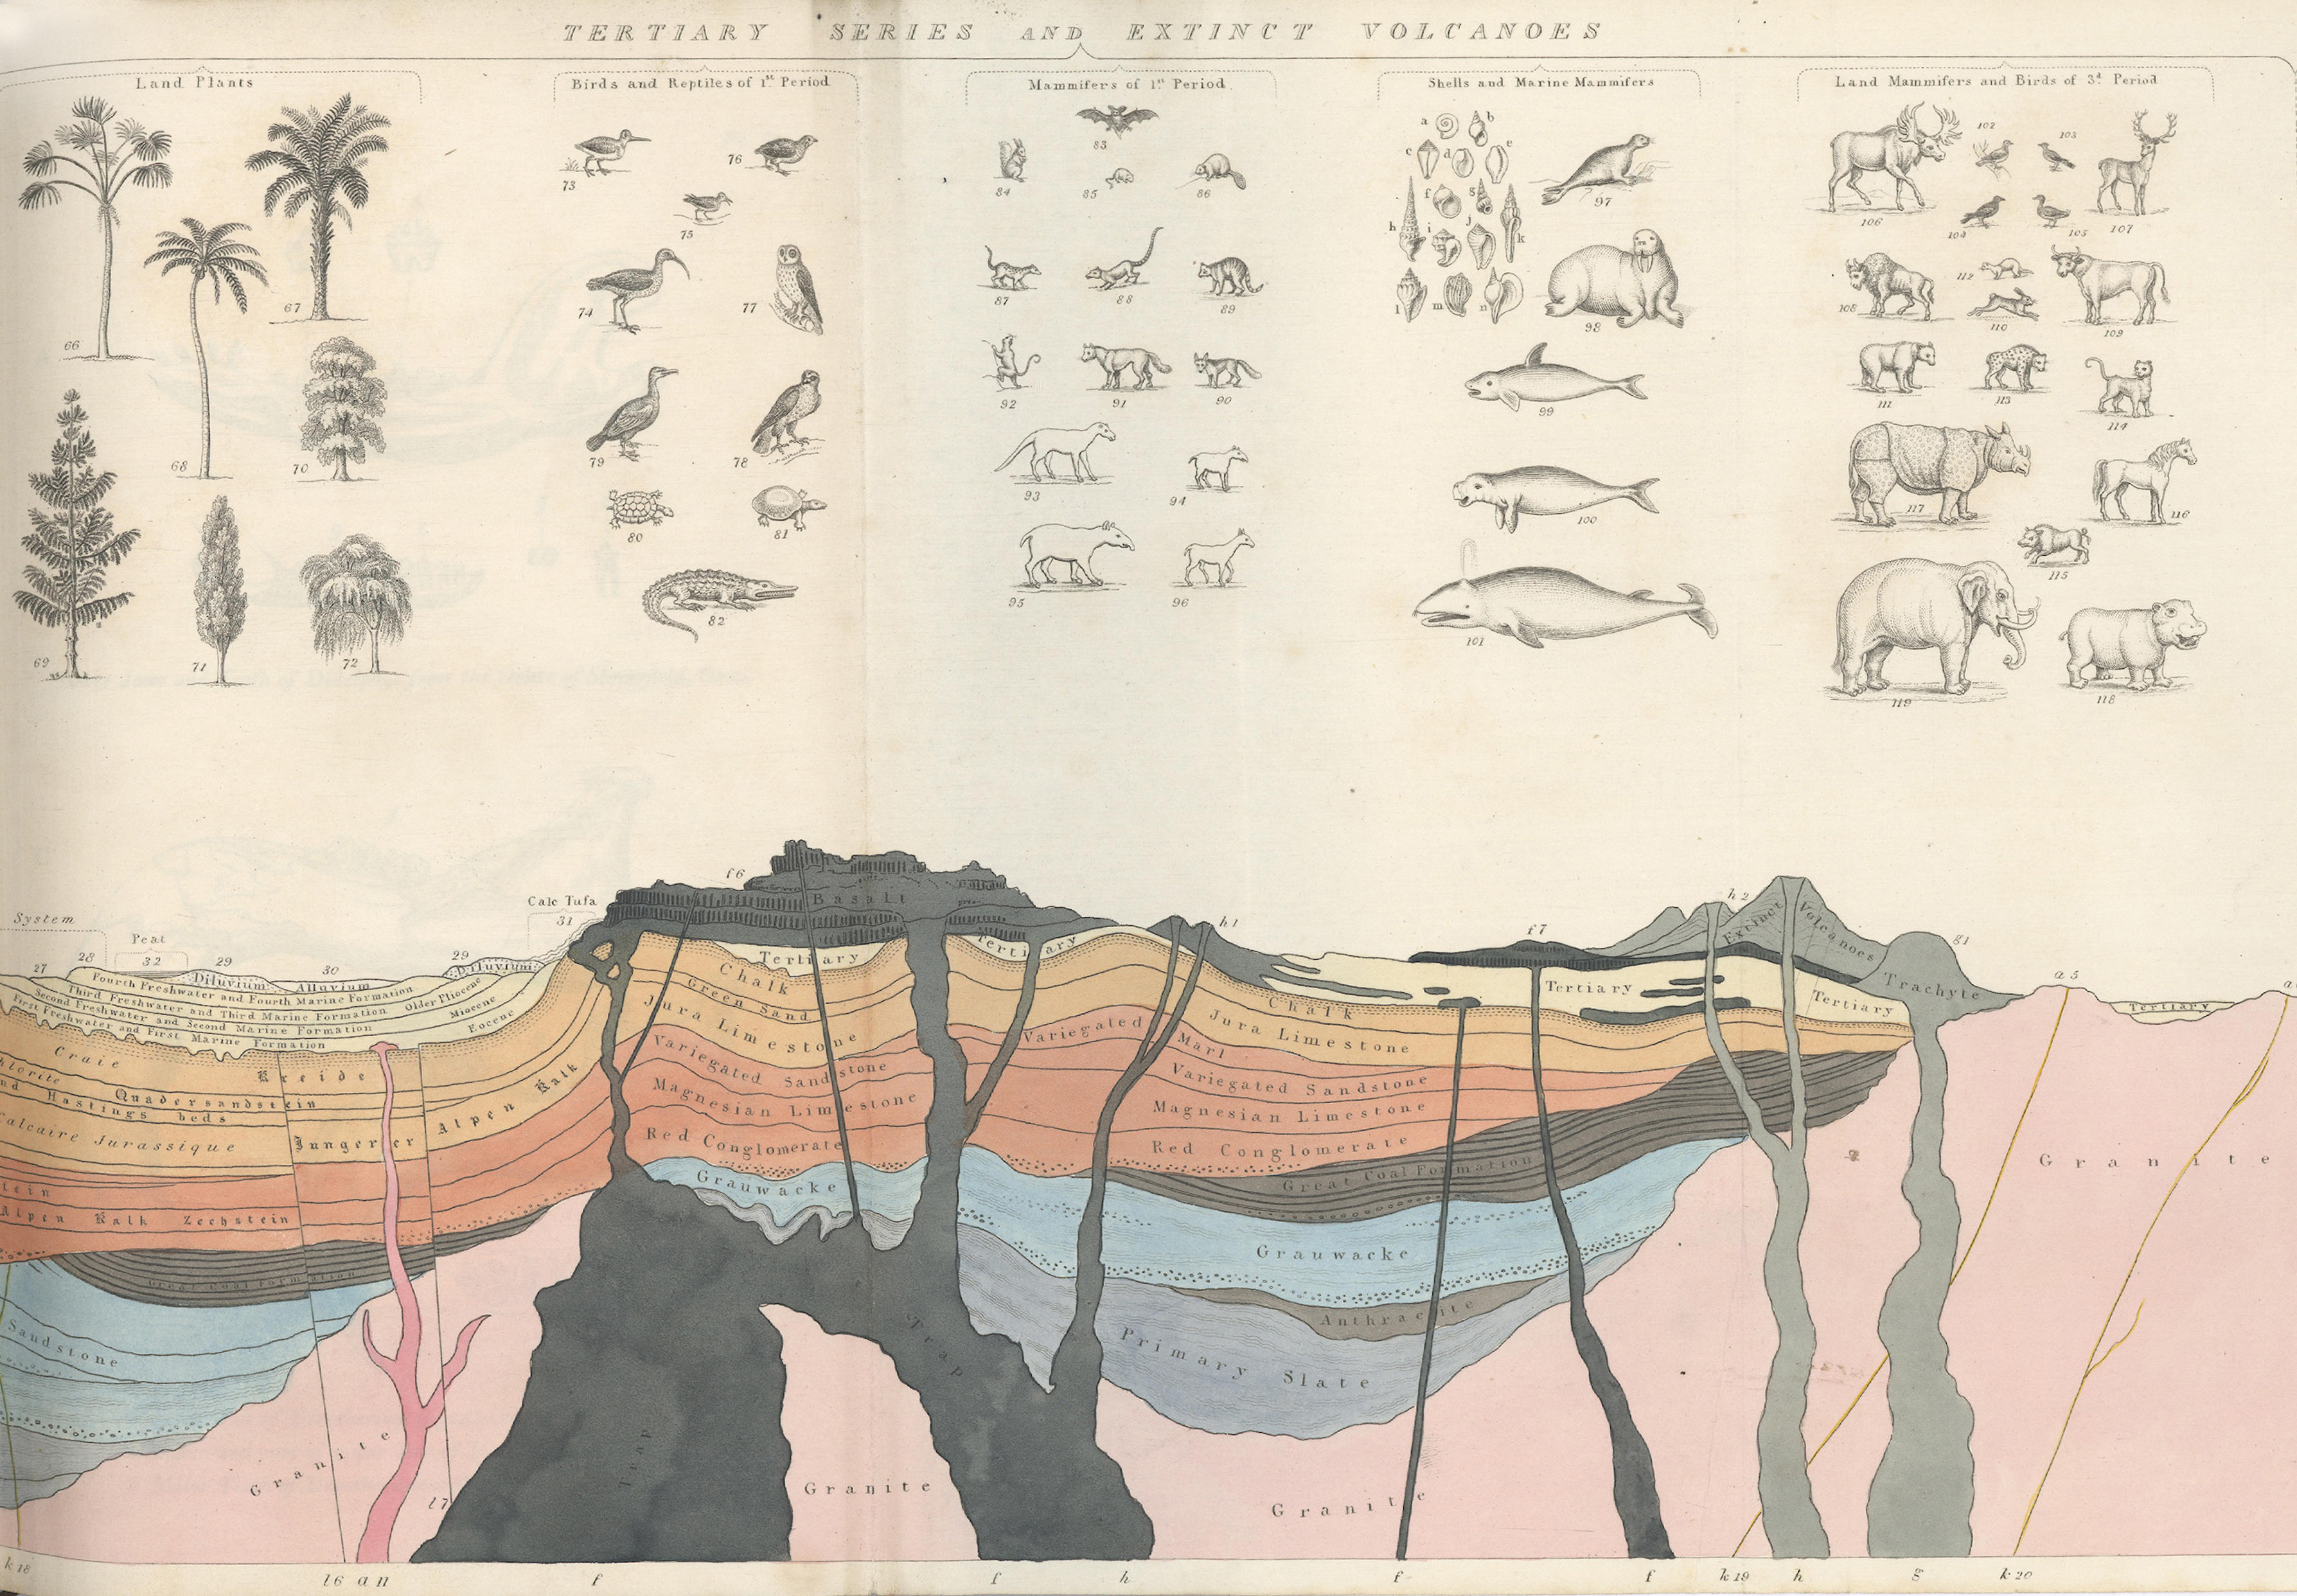 TERTIARY SERIES AND EXTINCT VOLCANOES
Land Plants
66
67
68
69
70
71
72
Birds and Reptiles of 1st Period
73
76
75
74
77
79
78
80
81
82
Mammifers of 1st Period
83
84
85
86
87
88
89
92
91
90
93
94
95
96
Shells and Marine Mammifers
a
b
c
d
e
f
g
h
i
j
k
l
m
n
97
98
99
100
101
Land Mammifers and Birds of 3d Period
102
103
106
104
105
107
108
112
110
109
111
113
114
117
116
115
119
118
System
Peat
27
28
32
29
30
29
Calc Tufa
31
f6
Basalt
h1
f7
h2
Extinct Volcanoes
g1
Trachyte
a5
Tertiary
Diluvium
Alluvium
Diluvium
Fourth Freshwater and Fourth Marine Formation
Third Freshwater and Third Marine Formation
Older Pliocene
Second Freshwater and Second Marine Formation
Miocene
First Freshwater and First Marine Formation
Eocene
Tertiary
Tertiary
Tertiary
Tertiary
Craie
Kreide
Quadersandstein
Hastings beds
Calcaire Jurassique
Alpen Kalk
Alpen Kalk Zechstein
Great Coal Formation
Sandstone
Granite
l7
Chalk
Green Sand
Jura Limestone
Variegated Sandstone
Magnesian Limestone
Red Conglomerate
Grauwacke
Trap
Trap
Granite
Chalk
Jura Limestone
Variegated Marl
Variegated Sandstone
Magnesian Limestone
Red Conglomerate
Great Coal Formation
Grauwacke
Anthracite
Primary Slate
Granite
Granite
k18
l6
a n
f
f
h
f
f
k19
h
g
k20